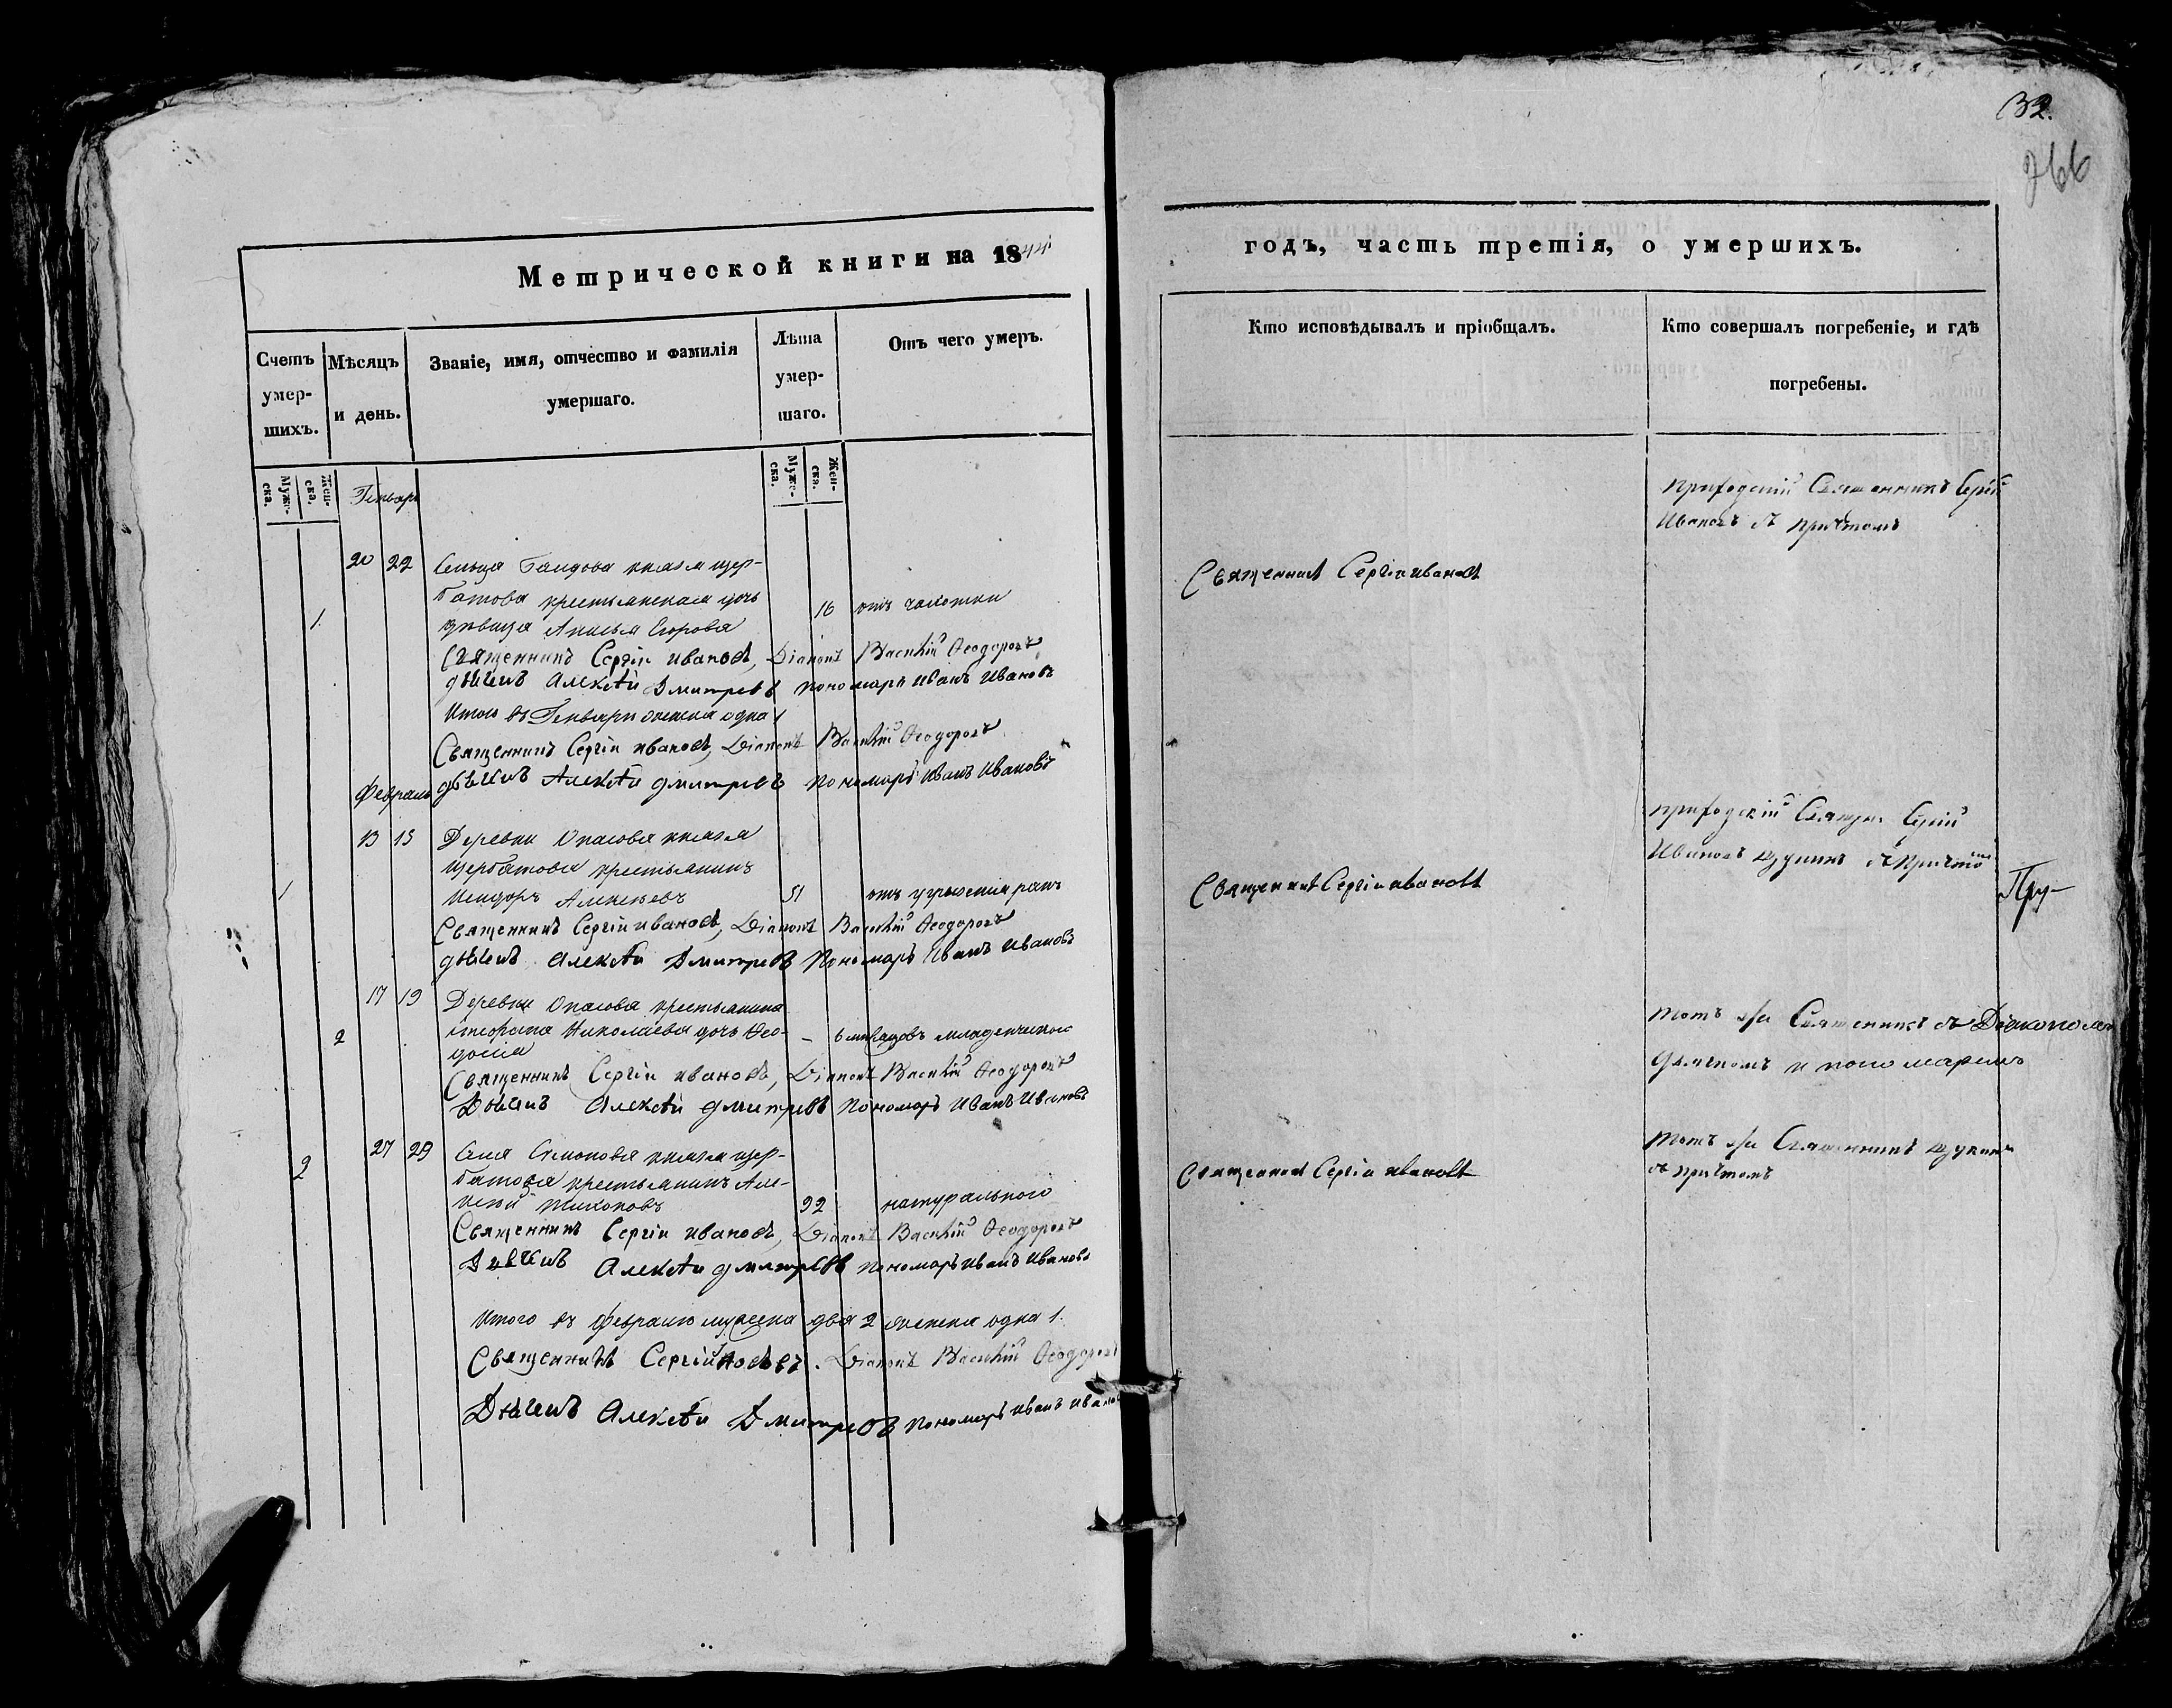 32.
266
Метрической книги на 1844
годъ, часть третія, о умершихъ.
Счетъ умер-шихъ.
Мѣсяцъ и день.
Званіе, имя, отчество и фамилія умершаго.
Лѣта умер-шаго.
Отъ чего умеръ.
Кто исповѣдывалъ и пріобщалъ.
Кто совершалъ погребеніе, и гдѣ погребены.
Муже-ска.
Жен-ска.
Муже-ска.
Жен-ска.
Генварь
Приходскій Священникъ Сергій
Ивановъ съ причтомъ
20 22 Сельца князя Щер-
батова крестьянская дочь
1 дѣвица Анисья Егорова 16 отъ чахотки
Священникъ Сергій Ивановъ
Священникъ Сергіи Ивановъ, Діаконъ Василій Ѳеодоровъ
дьячекъ Алексѣй Дмитревъ пономарь Иванъ Ивановъ
Итого въ Генварѣ женска одна 1
Священникъ Сергіи Ивановъ, Діаконъ Василій Ѳеодоровъ
дьячекъ Алексѣй Дмитревъ пономарь Иванъ Ивановъ
Февраль
13 15 Деревни князя
Щербатова крестьянинъ
1 Алексѣевъ 51 отъ ранъ
Священникъ Сергіи Ивановъ
Приходскій Священ. Сергій
Ивановъ съ причтомъ
Священникъ Сергіи Ивановъ, Діаконъ Василій Ѳеодоровъ
дьячекъ Алексѣй Дмитревъ Пономарь Иванъ Ивановъ
17 19 Деревни крестьянина
2 Николаева дочь Ѳео-
досія - 6 младенческой
тотъ же Священникъ съ Діакономъ
дьячкомъ и пономаремъ
Священникъ Сергіи Ивановъ, Діаконъ Василій Ѳеодоровъ
Дьячекъ Алексѣй Дмитревъ Пономарь Иванъ Ивановъ
27 29 Села князя Щер-
2 батова крестьянинъ Але-
ксѣй 92 натурального
Священникъ Сергіи Ивановъ
тотъ же Священникъ
съ причтомъ
Священникъ Сергіи Ивановъ, Діаконъ Василій Ѳеодоровъ
Дьячекъ Алексѣй Дмитревъ Пономарь Иванъ Ивановъ
Итого въ Февралѣ мужска два 2 женска одна 1.
Священникъ Сергій Ивановъ. Діаконъ Василій Ѳеодоровъ
Дьячекъ Алексѣй Дмитревъ пономарь Иванъ Ивановъ